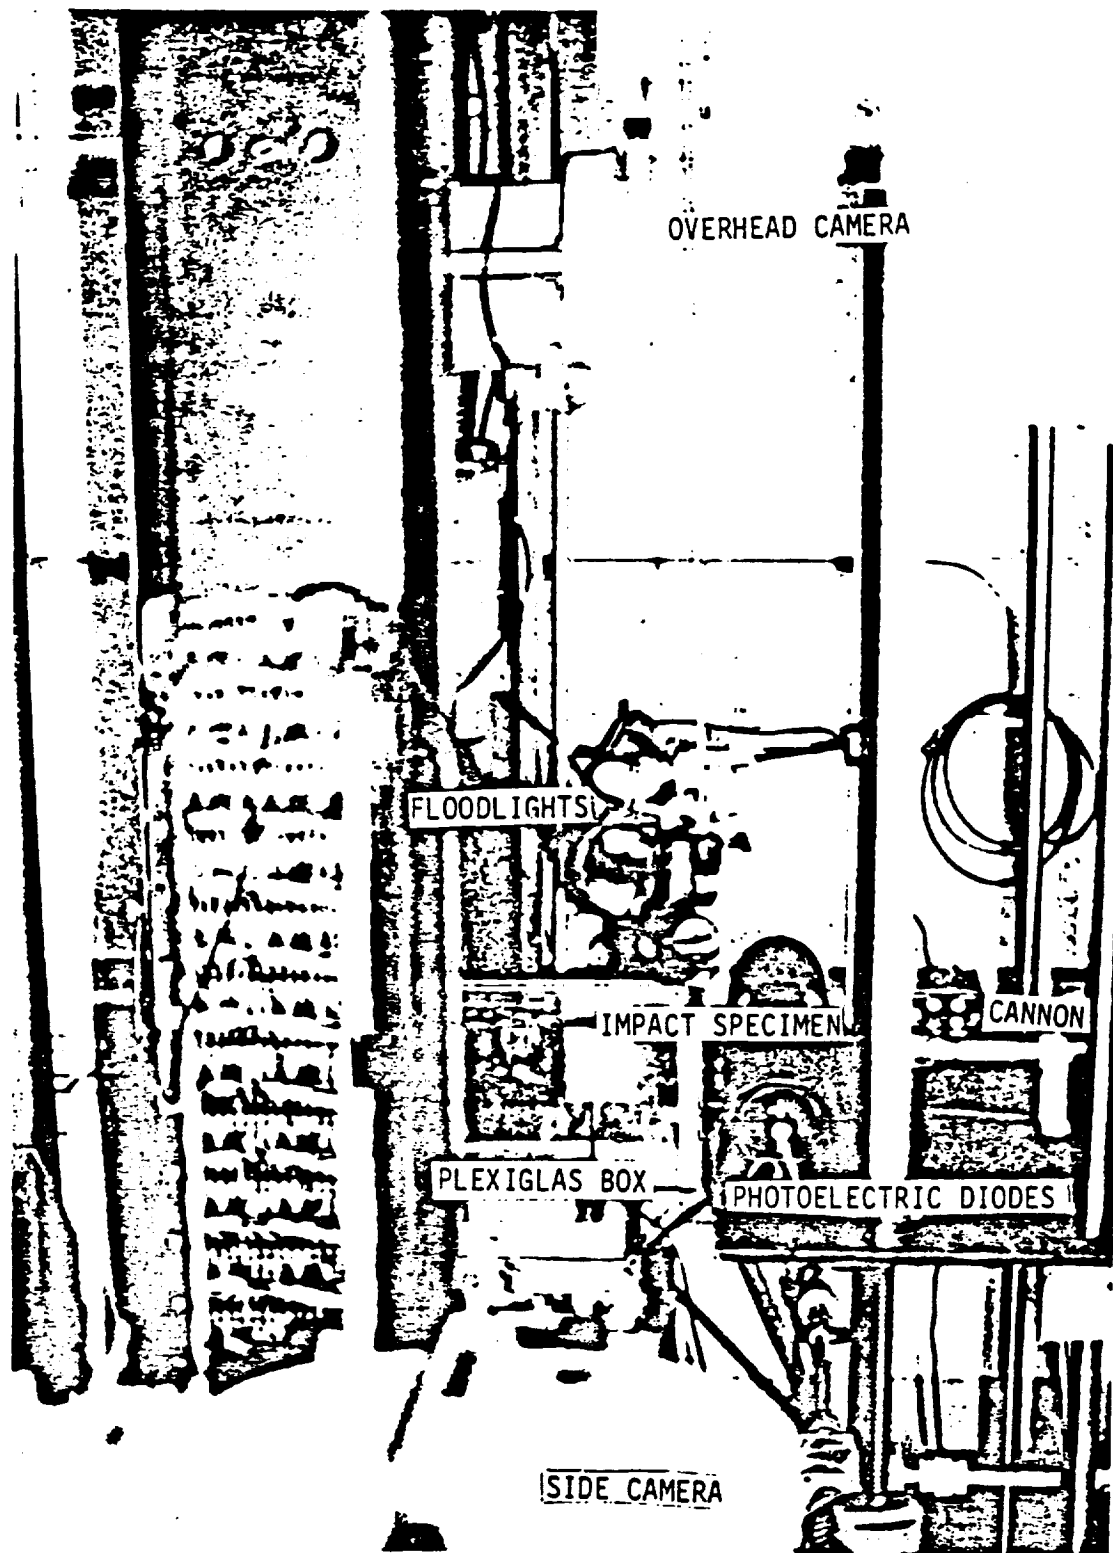 OVERHEAD CAMERA
FLOODLIGHTS
IMPACT SPECIMEN
CANNON
PLEXIGLAS BOX
PHOTOELECTRIC DIODES
SIDE CAMERA